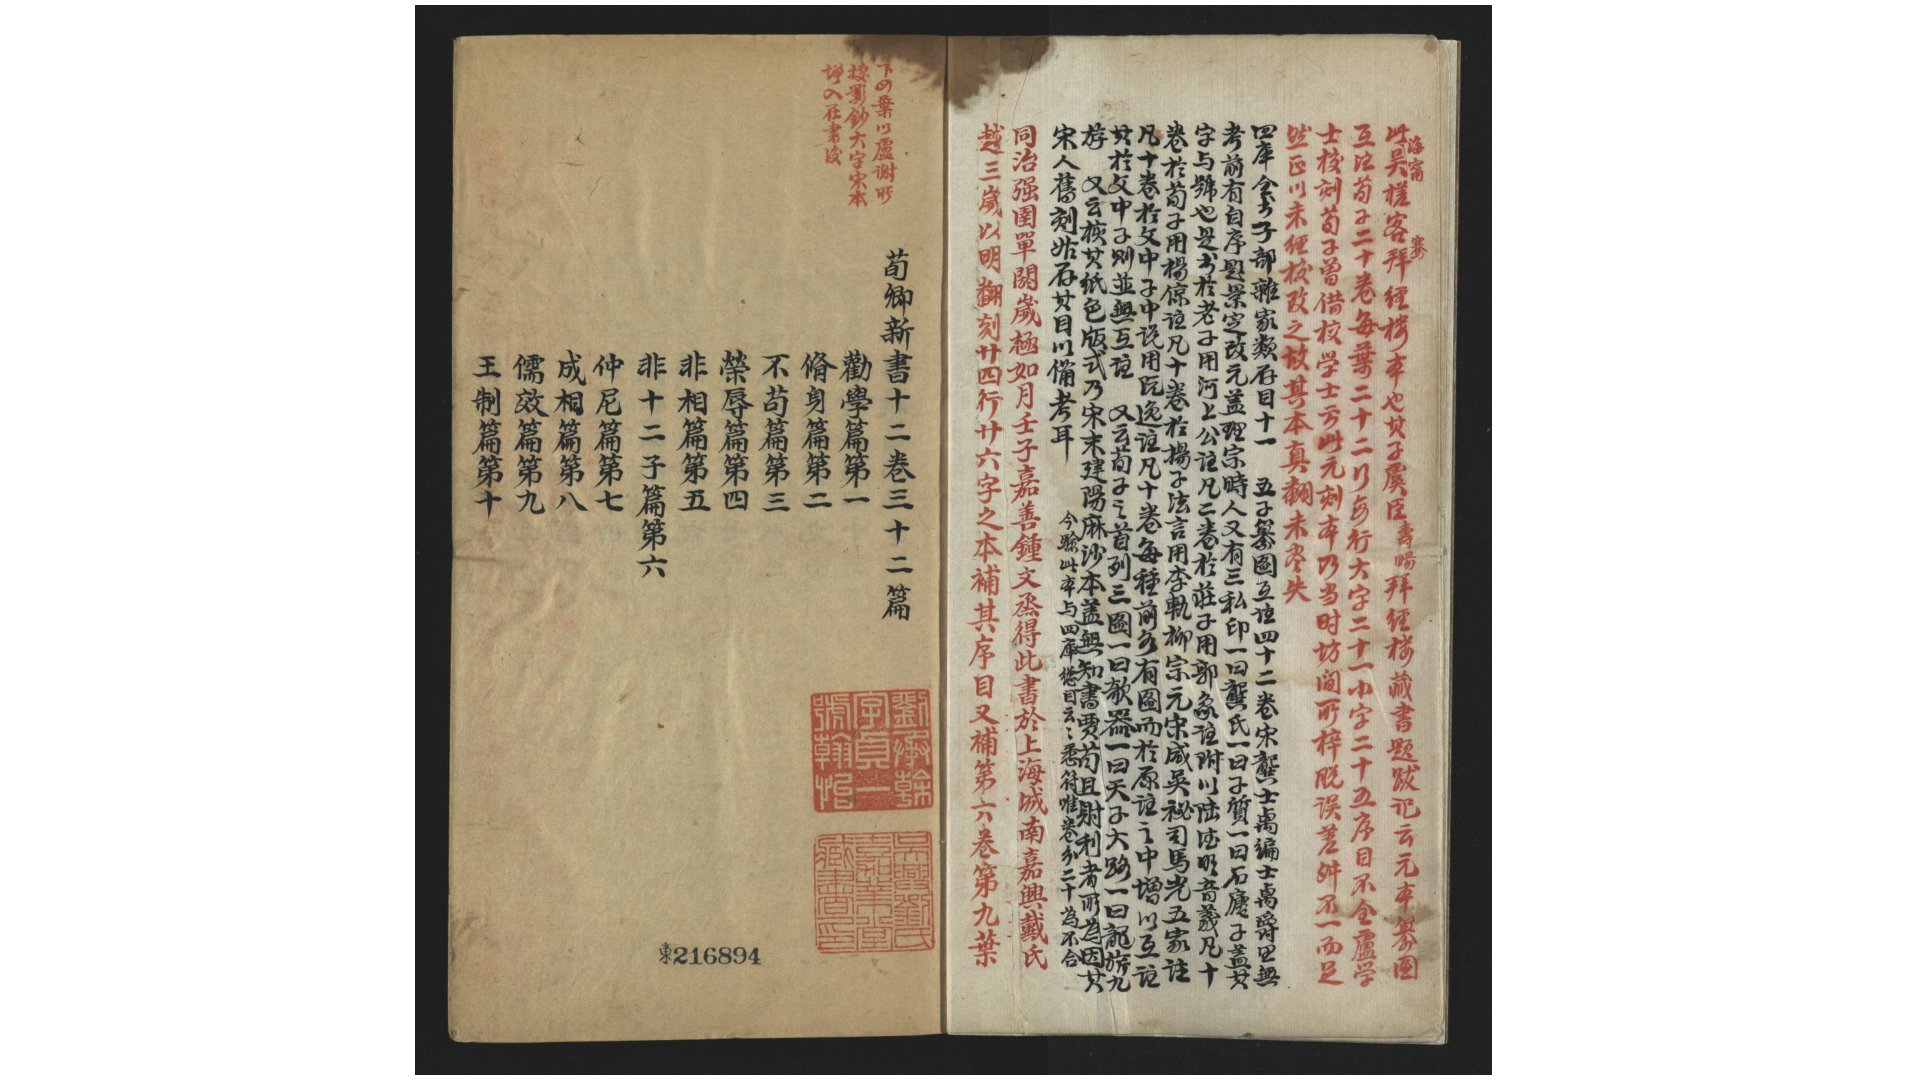 此海甯吳槎客騫拜經樓本也其子虞臣壽暘拜經樓藏書題跋记云元本纂圖
互注荀子二十卷每葉二十二行每行大字二十一小字二十五序目不全盧学
士校刻荀子曾借校学士云此元刻本乃当时坊间所梓脱误差舛不一而足
然正以未經校改之故其本真翻未尽失
四庫全书子部雜家類存目十一　五子纂圖互註四十二卷宋龔士卨編士卨爵里無
考前有自序題景定改元盖理宗時人又有三私印一曰龔氏一曰子質一曰石廬子盖其
字与號也是书於老子用河上公註凡二卷於莊子用郭象註附以陆德明音義凡十
卷於荀子用楊倞註凡十卷於揚子法言用李軌柳宗元宋咸吳祕司馬光五家註
凡十卷於文中子中说用阮逸註凡十卷每種前各有圖而於原註之中增以互註
其於文中子则並無互註　又云荀子之首列三圖一曰欹器一曰天子大路一曰龍旂九
斿　又云核其紙色版式乃宋末建陽麻沙本盖無知書賈苟且射利者所為因其
宋人舊刻姑存其目以備考耳
今驗此本与四庫總目云云悉符唯卷分二十為不合
同治强圉單閼嵗極如月壬子嘉善鍾文烝得此書於上海城南嘉興戴氏
越三嵗以明翻刻廿四行廿六字之本補其序目又補第六卷第九葉
下四葉以盧谢所
據影鈔大字宋本
增入在書後
荀卿新書十二卷三十二篇
勸學篇第一
脩身篇第二
不苟篇第三
榮辱篇第四
非相篇第五
非十二子篇第六
仲尼篇第七
成相篇第八
儒效篇第九
王制篇第十
劉承幹
字貞一
號翰怡
吳興劉氏
嘉業堂
藏書印
東216894